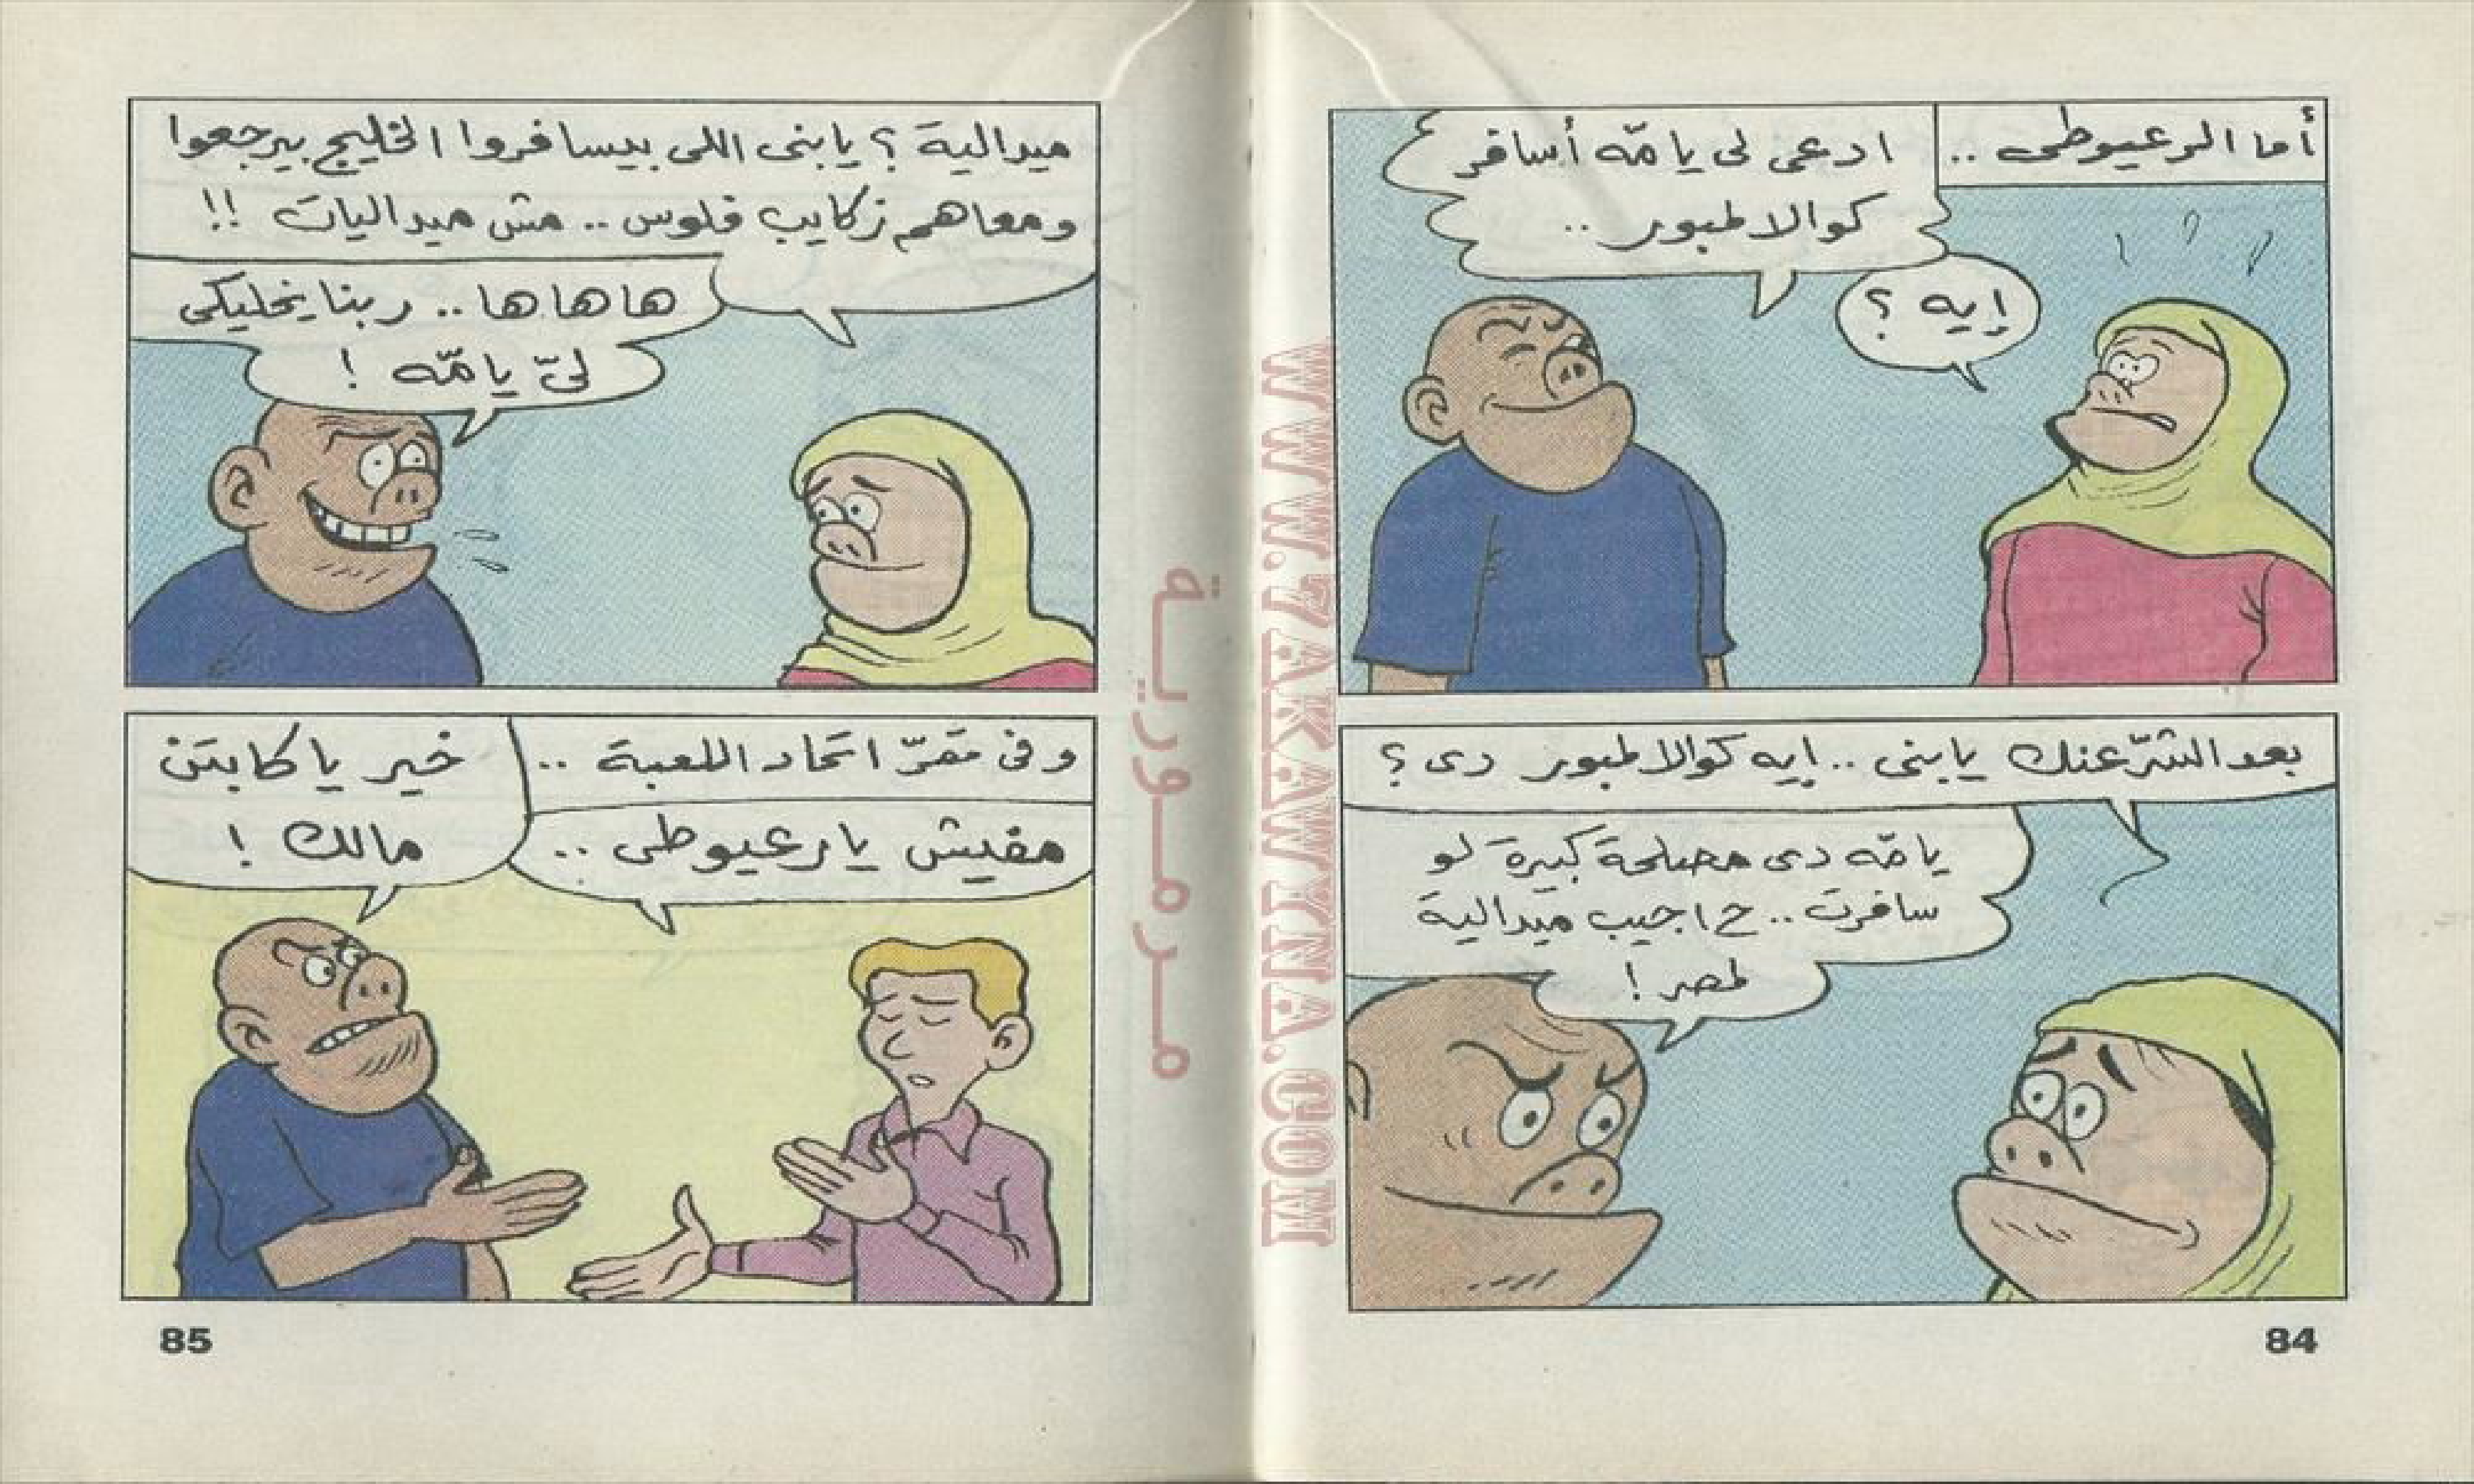 أما الرعيوطى ..
ادعى لى يا مّه أسافر
كوالالمبور ..
إيه ؟
بعد الشرّ عنك يا بنى .. إيه كوالالمبور دى ؟
يا مّه دى مصلحة كبيرة لو
سافرت .. ح اجيب ميدالية
لمصر !
84
ميدالية ؟ يا بنى اللى بيسافروا الخليج بيرجعوا
ومعاهم زكايب فلوس .. مش ميداليات !!
ها ها ها .. ربنا يخليكى
لىّ يا مّه !
وفى مقرّ اتحاد اللعبة ..
خير يا كابتن
مالك !
مفيش يا رعيوطى ..
85
مرمورية
WWW.7AKAWYNA.COM